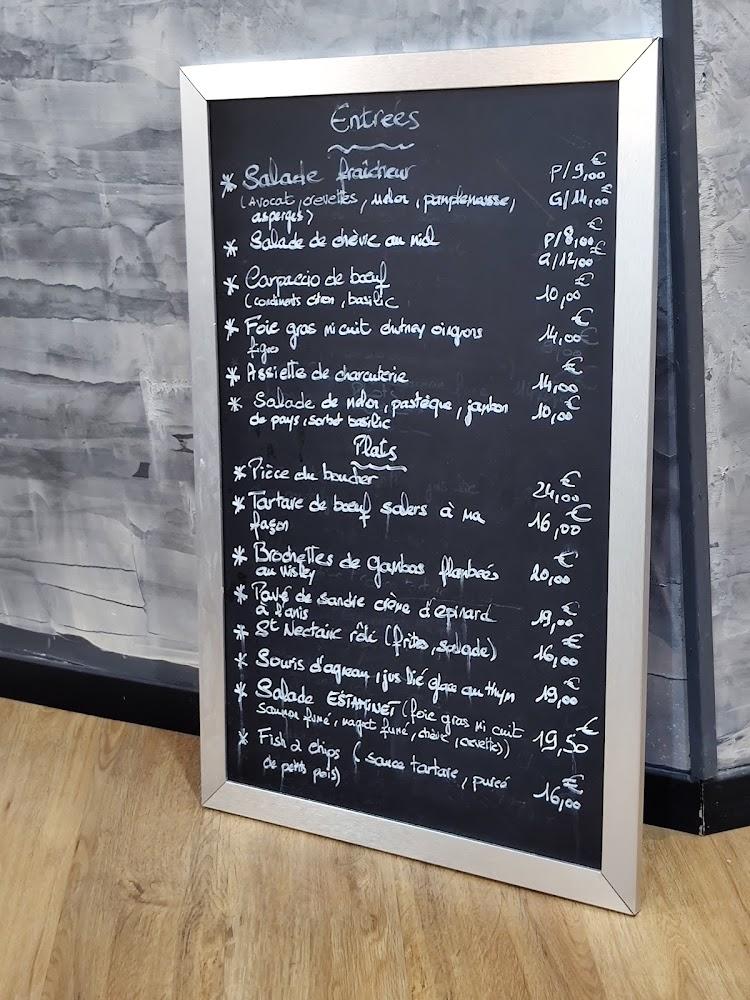 Entrées
* Salade fraîcheur P/9,00€
(Avocat, crevettes, melon, pamplemousse, G/14,00€
asperges)
* Salade de chèvre au miel P/8,00€
G/12,00€
* Carpaccio de bœuf
(condiments citron, basilic 10,00€
* Foie gras mi cuit chutney oingons 14,00€
figues
* Assiette de charcuterie 14,00€
* Salade de melon, pastèque, jambon 10,00€
de pays, sorbet basilic
Plats
* Pièce du boucher 24,00€
* Tartare de bœuf salers à ma 16,00€
façon
* Brochettes de gambas flambées 20,00€
au wisky
* Pavé de sandre crème d'épinard 19,00€
à l'anis
* St Nectaire rôti (frites, salade) 16,00€
* Souris d'agneau, jus lié glace au thym 19,00€
* Salade ESTAMINET (foie gras mi cuit 19,50€
saumon fumé, magret fumé, chèvre, crevette))
* Fish & chips (sauce tartare, purée 16,00€
de petits pois)